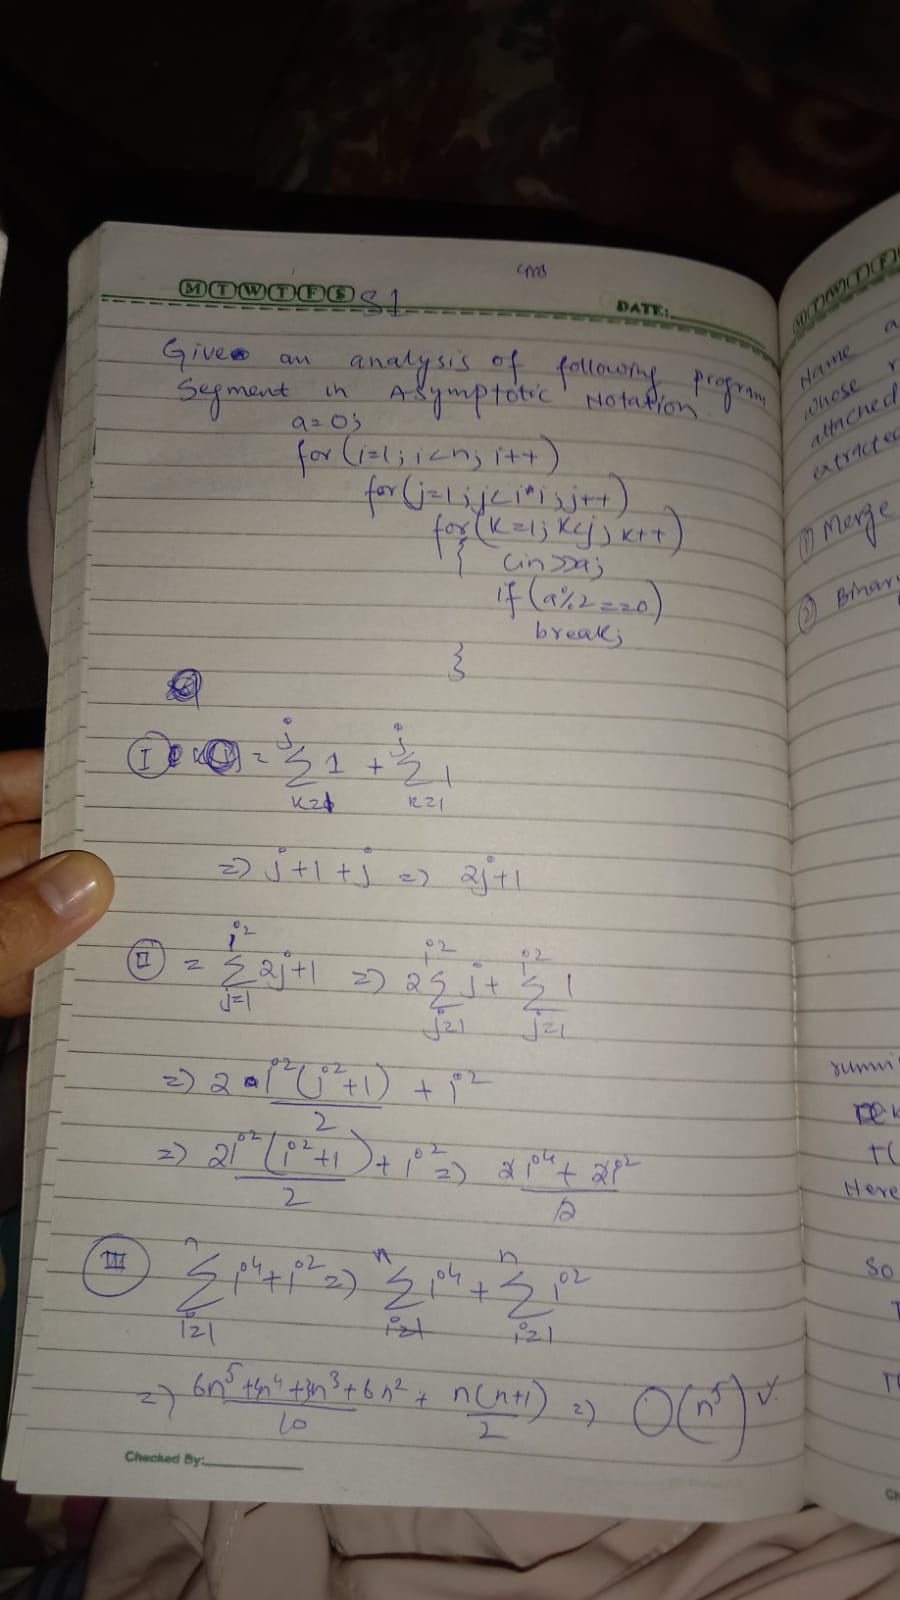 MTWTFS S1
DATE:
Give an analysis of following program
Segment in Asymptotic Notation.
a=0;
for (i=1; i<n; i++)
for (j=1; j<i*i; j++)
for (k=1; k<j; k++)
{ cin>>a;
if (a%2==0)
break;
}
I = j∑k=1 1 + j∑k=1 1
=> j+1+j => 2j+1
II = i²∑j=1 2j+1 => 2 i²∑j=1 j + i²∑j=1 1
=> 2·i²(i²+1)/2 + i²
=> 2i²(i²+1)/2 + i² => 2i⁴+2i²/2
III n∑i=1 i⁴+i² => n∑i=1 i⁴ + n∑i=1 i²
=> 6n⁵+4n⁴+3n³+6n²/10 + n(n+1)/2 => O(n⁵) ✓
Checked By:
MTWTF
Name a
whose
attached
extracte
① Merge
② Binary
runni
T(
Here
So